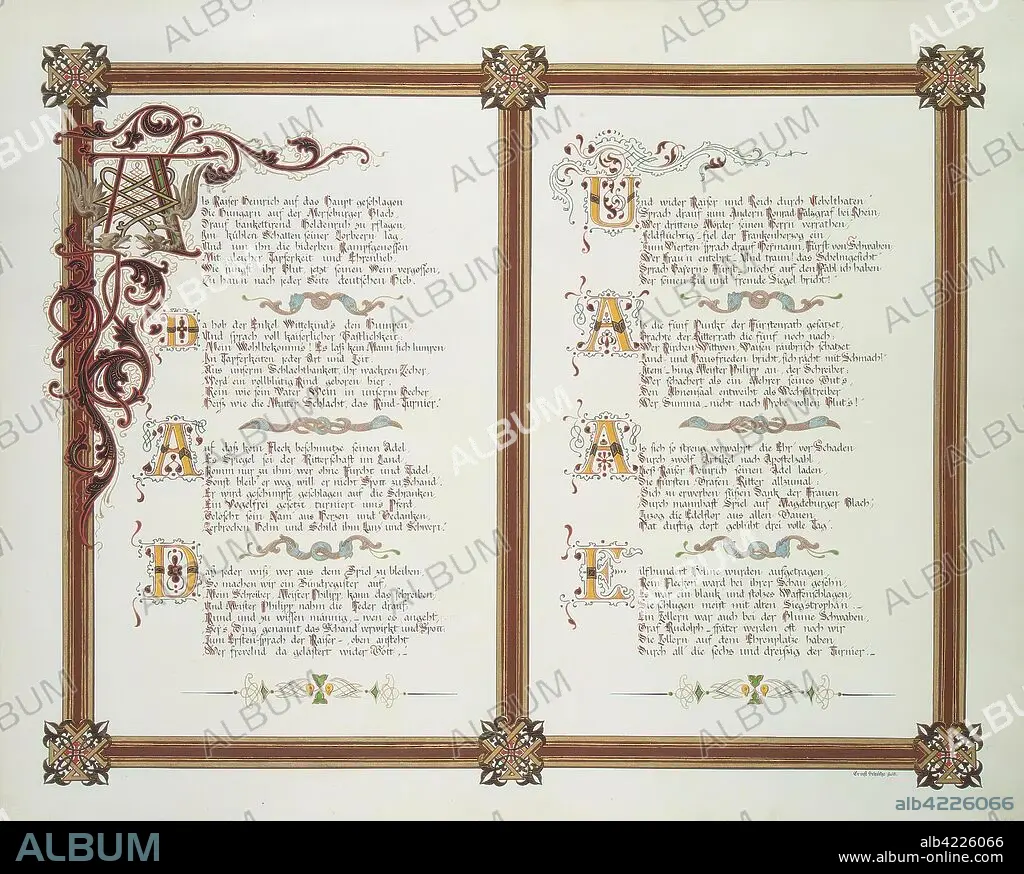 Als Kaiser Heinrich auf das Haupt geschlagen
Die Hungarn auf der Merseburger Flach,
Drauf bankettirend Heldenruh zu pflagen
Im kühlen Schatten seiner Lorbeern lag,
Und um ihn die biderben Kampfgenossen
Mit gleicher Tapferkeit und Ehrenlieb
Wie jüngst ihr Blut, jetzt seinen Wein vergossen,
Zu hau'n nach jeder Seite deutschen Hieb.
Da hob der Enkel Wittekind's den Humpen
Und sprach voll kaiserlicher Gastlichkeit:
Mein Wohlbekomms! Es laß kein Mann sich lumpen
In Tapferkeiten jeder Art und Zeit.
Aus unserm Schlachtbankett, ihr wackren Zecher,
Werd ein vollblütig Kind geboren hier:
Rein wie sein Vater Wein in unserm Becher
Heiß wie die Mutter Schlacht, das Kind Turnier.
Auf daß kein Fleck beschmutze seinen Adel,
Es Spiegel sei der Ritterschaft im Land
Komm nur zu ihm wer ohne Furcht und Tadel
Sonst bleib' er weg will er nicht Spott zu Schand'.
Er wird geschimpft geschlagen auf die Schranken,
Ein Vogelfrei gesetzt turniert ums Pferd
Gelöscht sein Nam' aus Herzen und Gedanken,
Zerbrochen Helm und Schild ihm Lanz und Schwert.
Daß jeder wiß' wer aus dem Spiel zu bleiben
So machen wir ein Sündregister auf,
Mein Schreiber, Meister Philipp kann das schreiben,
Und Meister Philipp nahm die Feder drauf
Kund und zu wissen männig,_ wen es angeht,
Sei's Ding genannt das Schand verwirkt und Spott:
Zum Ersten_sprach der Kaiser_, oben ansteht
Wer frevelnd da gelästert wider Gott,_
Und wider Kaiser und Reich durch Uebelthaten
Sprach drauf zum Andern Konrad Pfalzgraf bei Rhein,
Wer drittens Mörder seinen Herrn verrathen,
Feldflüchtig_ fiel der Frankenherzog ein
Zum Vierten sprach drauf Hermann, Fürst von Schwaben,
Wer Frau'n entehrt, Und traun! das Schelmgesicht
Sprach Bayerns Fürst möcht auf den Pfahl ich haben
Der seinen Eid und fremde Siegel bricht!
Als die fünf Punkt der Fürstenrath gesetzet,
Brachte der Ritterrath die fünf noch nach:
Wer Kirchen Wittwen Waisen räubrisch schätzet
Land_ und Hausfrieden bricht, sich rächt mit Schmach!
Item_ hing Meister Philipp an der Schreiber:
Wer schachert als ein Mehrer seines Gut's,
Den Ahnensaal entweiht als Wechseltreiber
Wer Summa_ nicht nach Probe vollen Blut's!
Als sich so streng verwahrt die Ehr' vor Schaden
Durch zwölf Artikel nach Apostelzahl
Ließ Kaiser Heinrich seinen Adel laden,
Die Fürsten Grafen Ritter allzumal:
Sich zu erwerben süßen Dank der Frauen
Durch mannhaft Spiel auf Magdeburger Flach,
Zuzog die Edelflor aus allen Gauen,
Hat duftig dort geblüht drei volle Tag'.
Elfhundert Helme wurden aufgetragen
Kein Flecken ward bei ihrer Schau gesehn,
Es war ein blank und stolzes Waffenschlagen,
Sie schlugen meist mit alten Siegstrophän._
Ein Zollern war auch bei der Blume Schwaben,
Graf Rudolph_ später werden oft noch wir
Die Zollern auf dem Ehrenplatze haben
Durch all' die sechs und dreißig der Turnier._
alb4226066
ALBUM
alb4226066
www.album-online.com